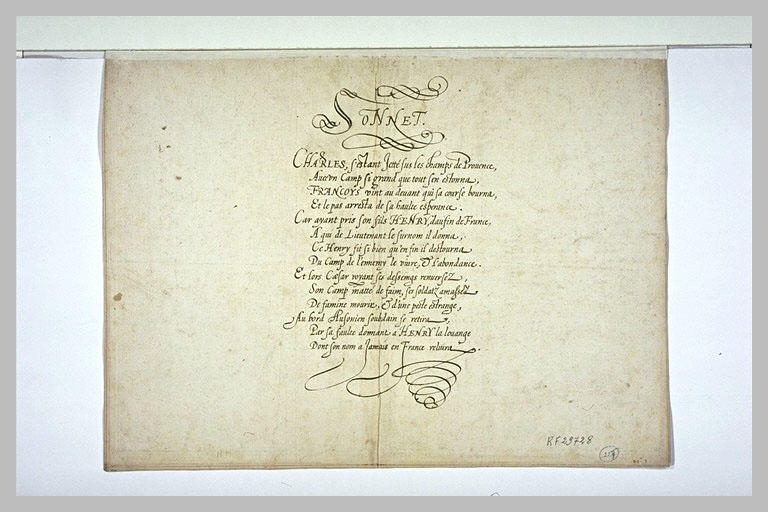 SONNET.
CHARLES, s'estant Jetté sus les champs de Provence,
Avec un Camp si grand que tout s'en estonna,
FRANCOYS vint au devant qui sa course bourna,
Et le pas arresta de sa haulte esperance.
Car ayant pris son fils HENRY, daufin de France,
A qui de Lieutenant le surnom il donna,
Ce Henry fit si bien qu'en fin il destourna
Du Camp de l'ennemy le vivre, & l'abondance.
Et lors Cæsar voyant ses desseings renversez,
Son Camp matté de faim, ses soldatz amassez
De famine mourir, & d'une peste estrange,
Au bord Ausonien soubdain se retira,
Par sa faulte donnant a HENRY la louange
Dont son nom a Jamais en France reluira.
RF 29728